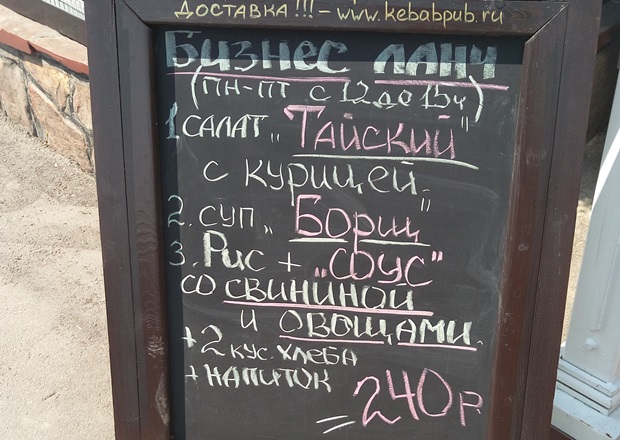 ДОСТАВКА !!! - www.kebabpub.ru
Бизнес ланч
(ПН-ПТ с 12 до 15ч)
1. САЛАТ „Тайский"
с курицей.
2. суп „Борщ"
3. Рис + „СОУС"
со свининой
и овощами.
+ 2 кус. хлеба
+ напиток
= 240р